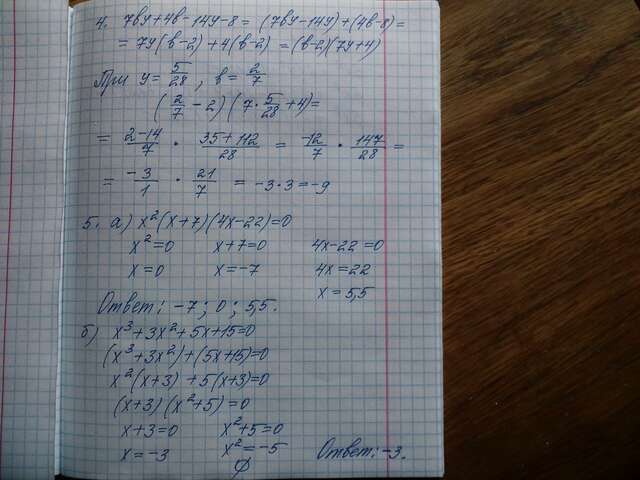 4. 7by+4b-14y-8= (7by-14y)+(4b-8)=
= 7y(b-2)+4(b-2) = (b-2)(7y+4)
При y= 5/28 , b= 2/7
(2/7 - 2) (7·5/28+4)=
= 2-14/7 · 35+112/28 = -12/7 · 147/28 =
= -3/1 · 21/7 = -3·3=-9
5. а) x²(x+7)(4x-22)=0
x²=0 x+7=0 4x-22=0
x=0 x=-7 4x=22
x=5,5
Ответ: -7; 0; 5,5.
б) x³+3x²+5x+15=0
(x³+3x²)+(5x+15)=0
x²(x+3)+5(x+3)=0
(x+3)(x²+5)=0
x+3=0 x²+5=0
x=-3 x²=-5 Ответ: -3.
∅